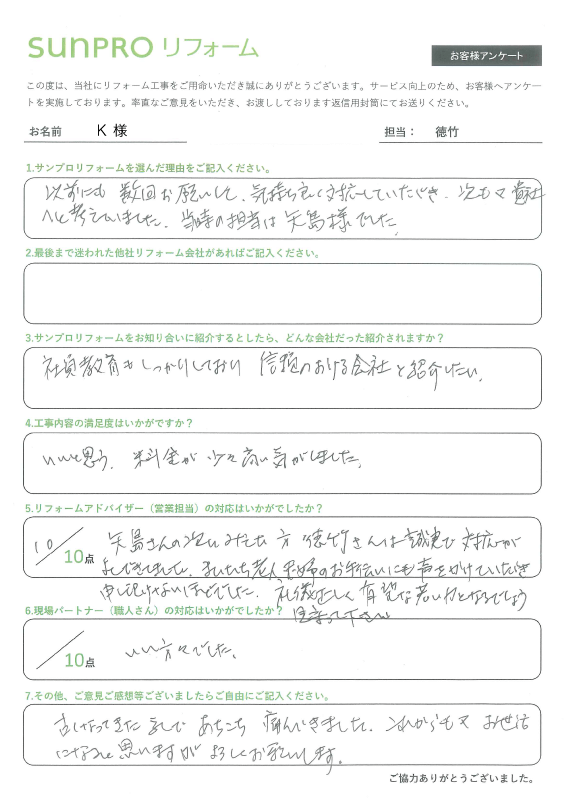 SUNPRO リフォーム
お客様アンケート
この度は、当社にリフォーム工事をご用命いただき誠にありがとうございます。サービス向上のため、お客様へアンケー
トを実施しております。率直なご意見をいただき、お渡ししております返信用封筒にてお送りください。
お名前 K 様
担当： 徳竹
1.サンプロリフォームを選んだ理由をご記入ください。
以前にも 数回お願いして、気持ち良く対応していただき、次もマタ貴社
へと考えていました。当時の担当は矢島様でした。
2.最後まで迷われた他社リフォーム会社があればご記入ください。
3.サンプロリフォームをお知り合いに紹介するとしたら、どんな会社だった紹介されますか？
社員教育もしっかりしており 信頼のおける会社と紹介したい。
4.工事内容の満足度はいかがですか？
いいと思う。料金が少々高い気がしました。
5.リフォームアドバイザー（営業担当）の対応はいかがでしたか？
10/10点
矢島さんの次にみえた方 徳竹さんは誠実で対応が
よくできてました。老人夫婦のお手伝いにも声をかけていただき
申し訳けないほどでした。礼儀正しく有望な若い力となるでしょう
6.現場パートナー（職人さん）の対応はいかがでしたか？
見守って下さい
/10点
いい方々でした。
7.その他、ご意見ご感想等ございましたらご自由にご記入ください。
古くなってきた家で あちこち 痛んできました。これからもマタ お世話
になると思いますが よろしくお願いします。
ご協力ありがとうございました。